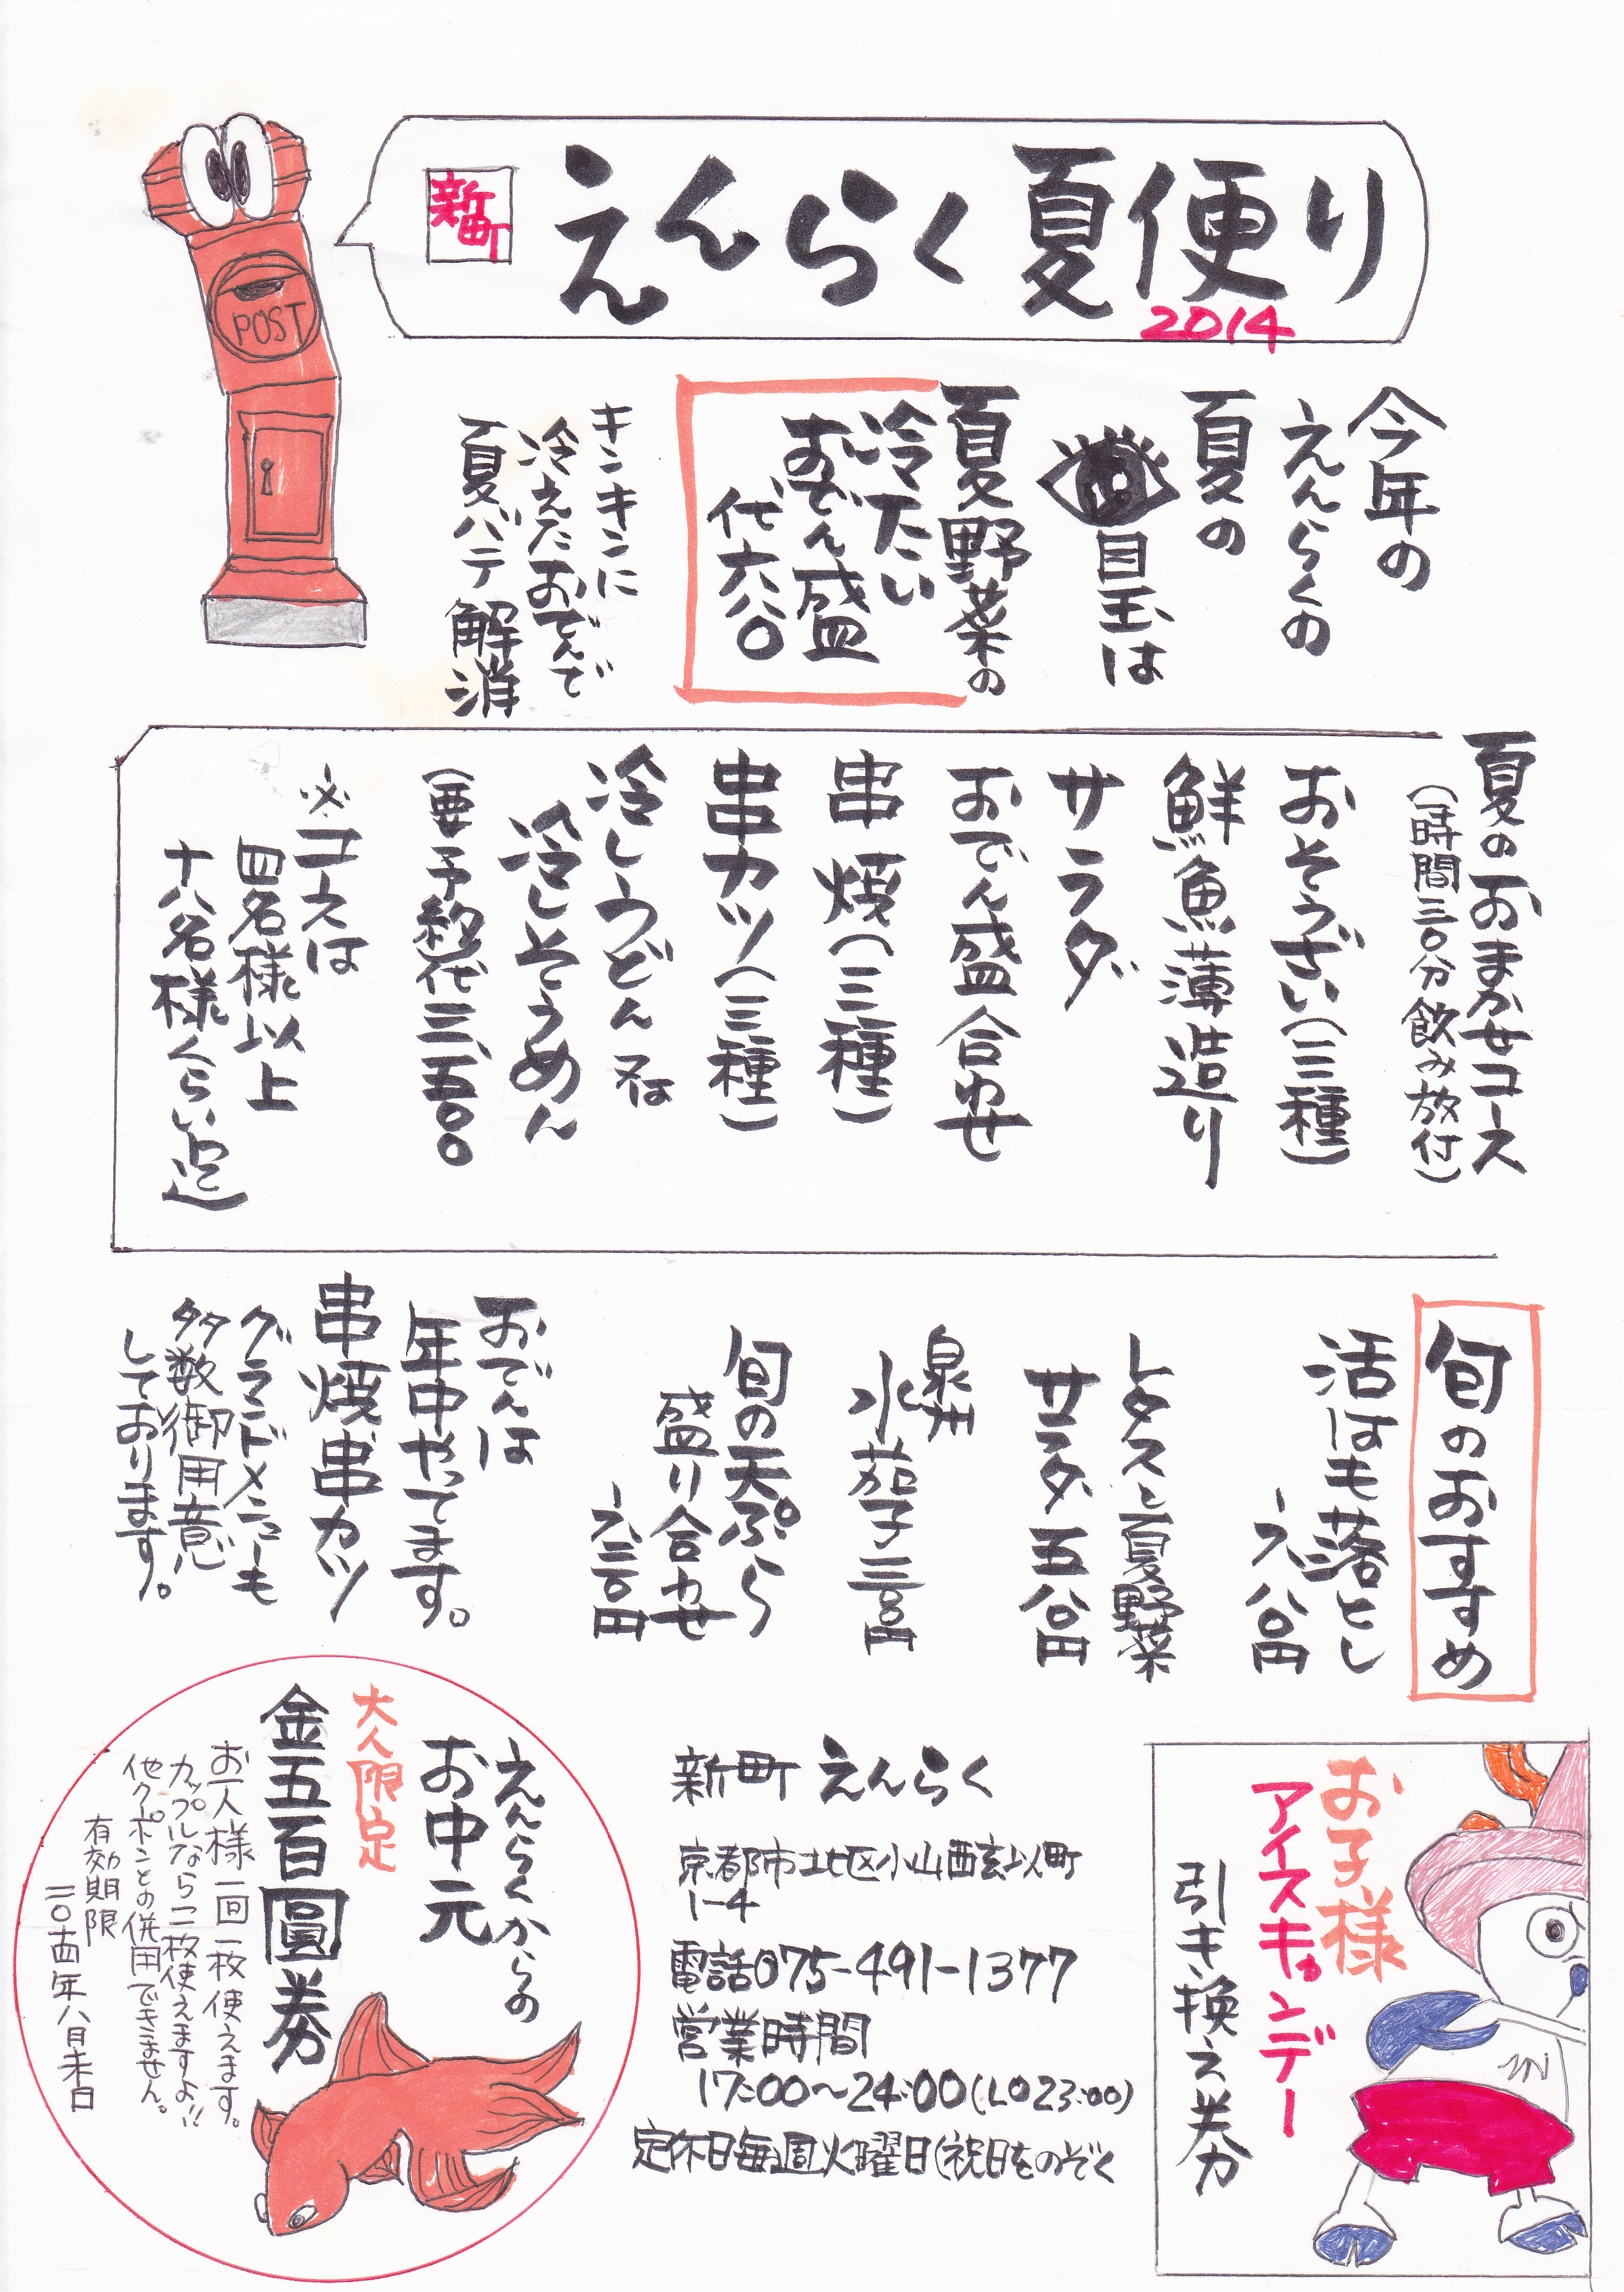 新町
えんらく夏便り
2014
POST
今年の
えんらくの
夏の
目玉は
夏野菜の
冷たい
おでん盛
代六八〇
キンキンに
冷えたおでんで
夏バテ解消
夏のおまかせコース
(一時間三〇分飲み放付)
おそうざい(三種)
鮮魚薄造り
サラダ
おでん盛合わせ
串焼(三種)
串カツ(三種)
冷しうどん又は
冷しそうめん
(要予約)代三、五〇〇
※コースは
四名様以上
十八名様くらい迄
旬のおすすめ
活はも落とし
一六八〇円
レタスと夏野菜
サラダ五八〇円
泉州
水茄子三八〇円
旬の天ぷら
盛り合わせ
おでんは
年中やってます。
串焼串カツ
グランドメニューも
多数御用意
しております。
お子様
アイスキャンデー
引き換え券
新町えんらく
京都市北区小山西玄以町
1-4
電話075-491-1377
営業時間
17:00〜24:00(LO23:00)
定休日毎週火曜日(祝日をのぞく
えんらくからの
お中元
大人限定
金五百圓券
お一人様一回一枚使えます。
カップルなら二枚使えますよ!!
他クーポンとの併用できません。
有効期限
二〇一四年八月末日